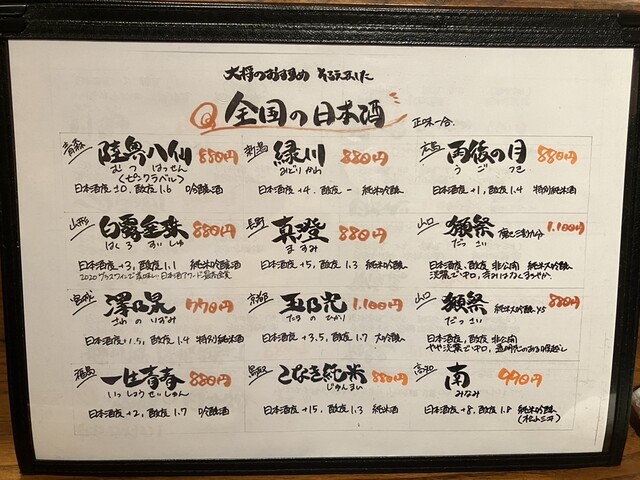 大将のおすすめ そろえました
全国の日本酒 正味一合.
青森 陸奥八仙 880円
むつ はっせん
〈ピンクラベル〉
日本酒度±0. 酸度1.6 吟醸酒
新潟 緑川 880円
みどりかわ
日本酒度+4. 酸度 - 純米吟醸
広島 雨後の月 880円
うご つき
日本酒度+1, 酸度1.4 特別純米酒
山形 白露垂珠 880円
はくろ すいしゅ
日本酒度+3, 酸度1.1 純米吟醸酒
2020 グラスワインで美味しい日本酒アワード 最高金賞
長野 真澄 880円
ますみ
日本酒度+5, 酸度1.3 純米吟醸
山口 獺祭 磨き三割九分 1.100円
だっさい
日本酒度、酸度 非公開 純米大吟醸
淡麗で辛口
宮城 澤乃泉 770円
さわ の いずみ
日本酒度+1.5, 酸度1.4 特別純米酒
京都 玉乃光 1.100円
たまの ひかり
日本酒度+3.5, 酸度1.7 大吟醸
山口 獺祭 純米大吟醸45 880円
だっさい
日本酒度、酸度 非公開
やや淡麗で辛口、透明感のある口当り
福島 一生青春 880円
いっしょうせいしゅん
日本酒度+2, 酸度1.7 吟醸酒
鳥取 こなき純米 880円
じゅんまい
日本酒度+15, 酸度1.3 純米酒
高知 南 990円
みなみ
日本酒度+8, 酸度1.8 純米吟醸
(松山三井)